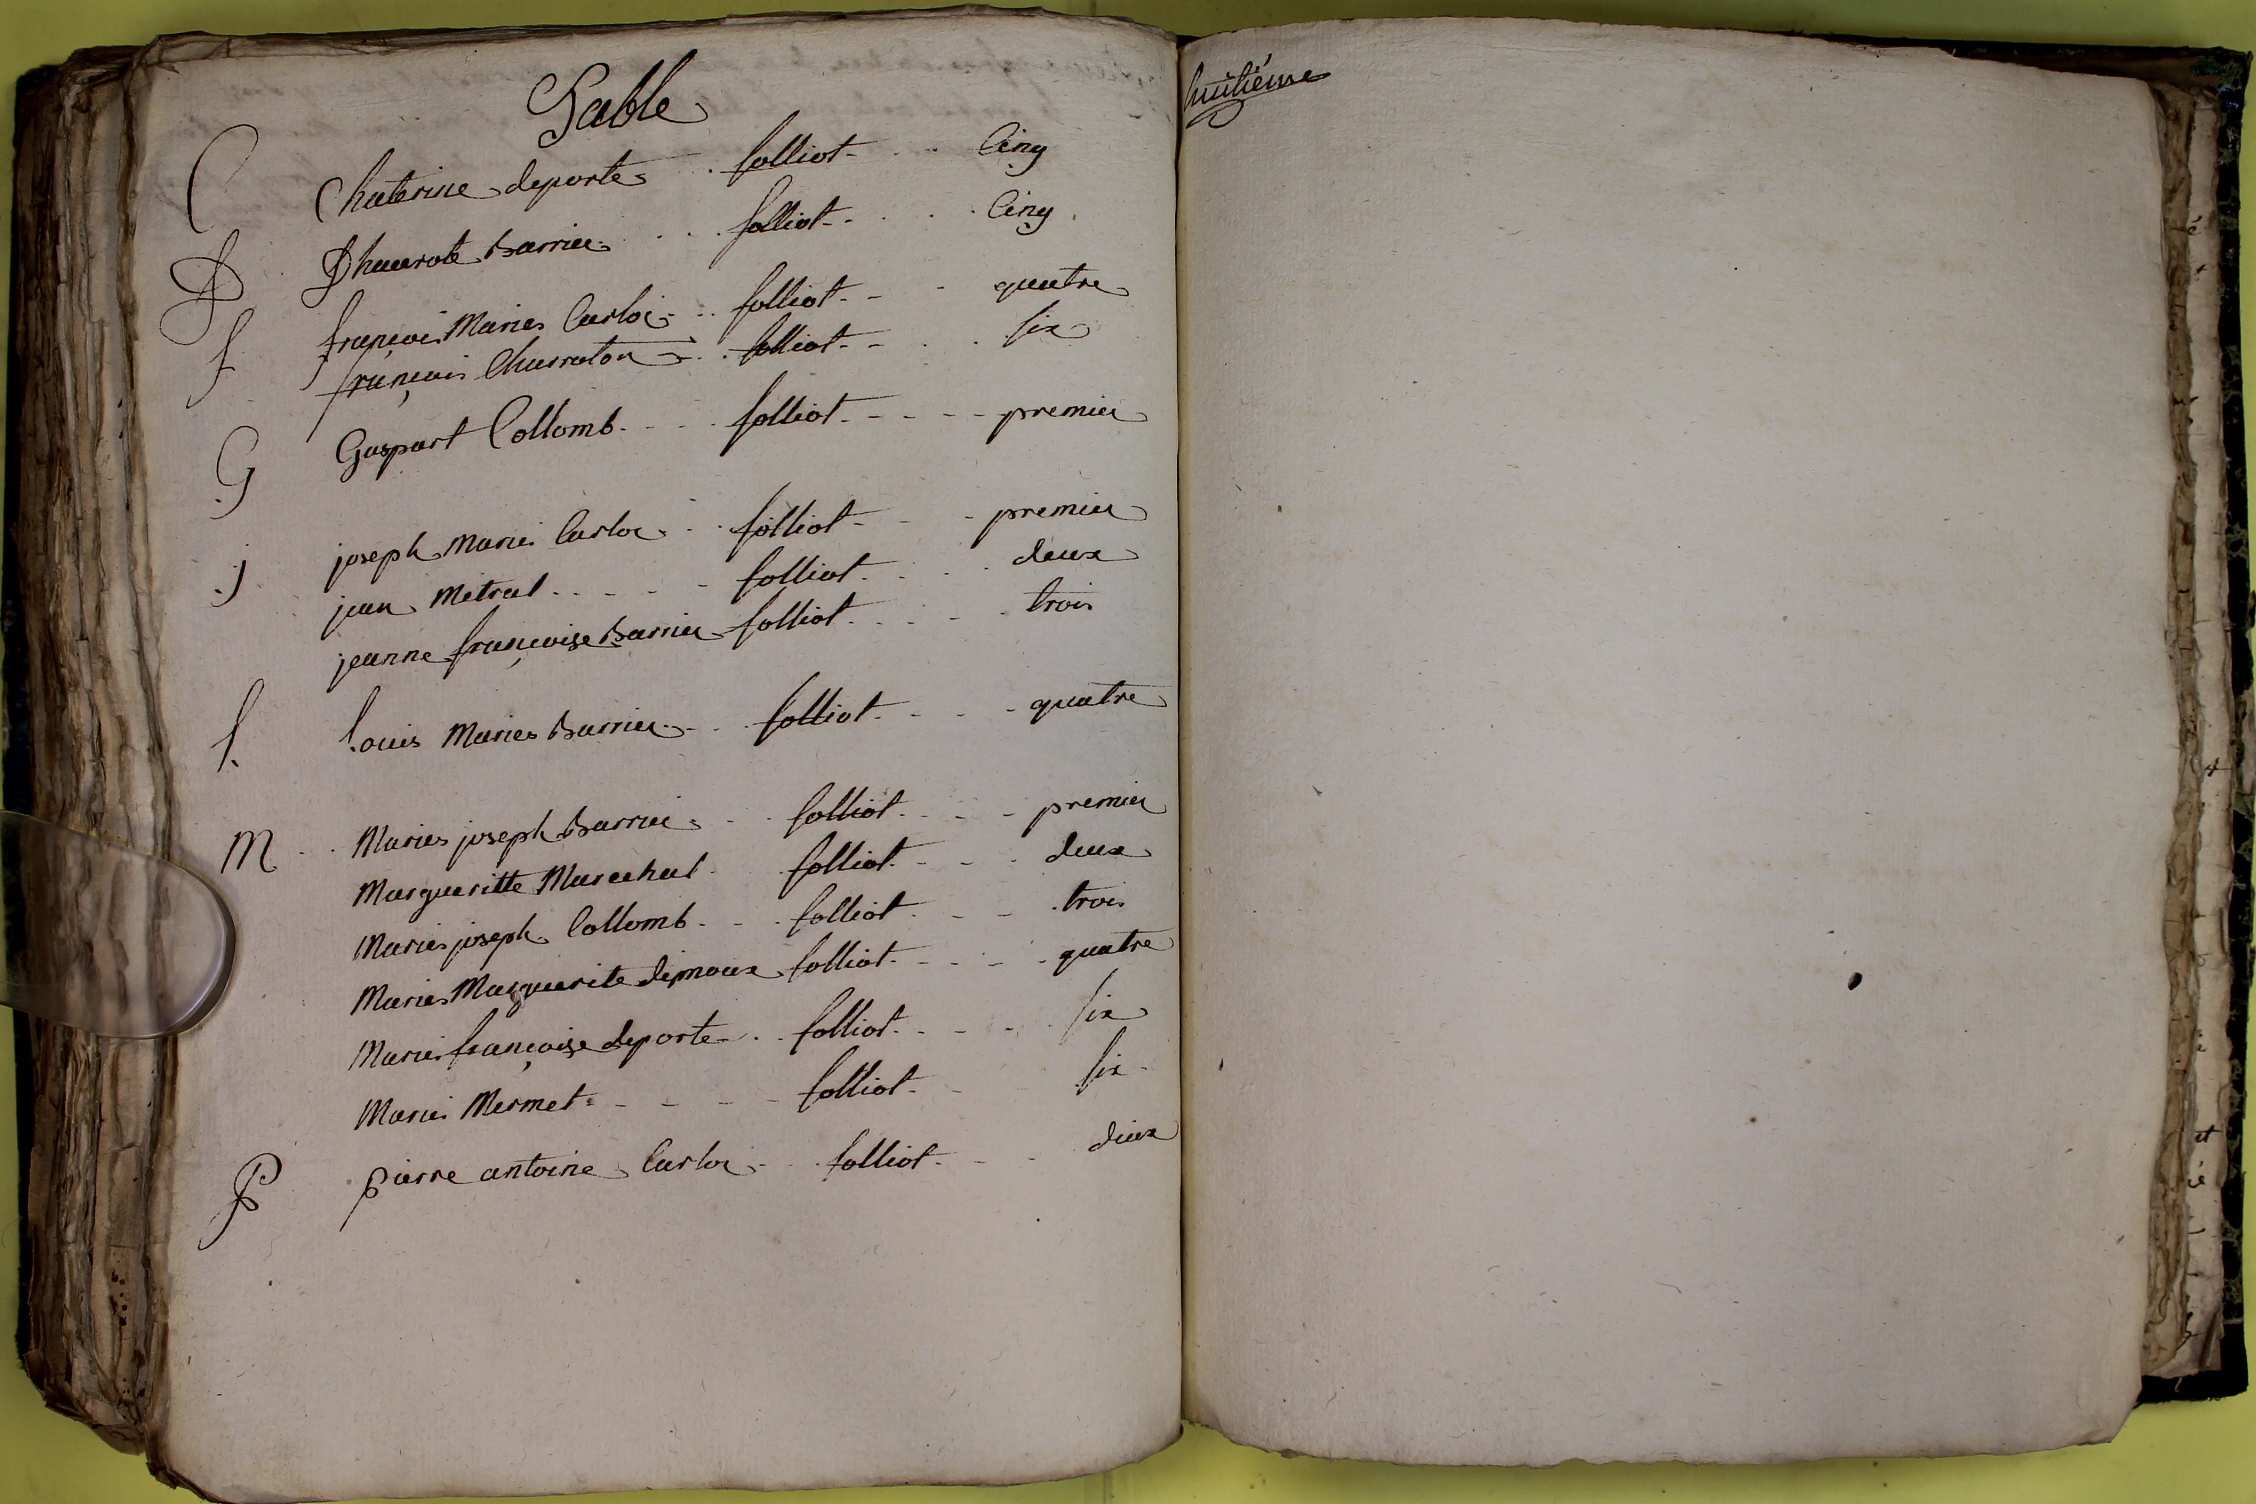 Table
C Chaterine deporte folliot cinq
D Dhaurote Barrier folliot cinq
f françois Maries Carloz folliot quatre
françois Charroton folliot six
G Gaspart Collomb folliot premier
j joseph Maries Carloz folliot premier
jean Metral folliot deux
jeanne françoise Barrier folliot trois
L Louis Maries Barrier folliot quatre
M Maries joseph Barrier folliot premier
Margueritte Marechal folliot deux
Maries joseph Collomb folliot trois
Maries Marguerite folliot quatre
Maries françoise deporte folliot six
Maries Mermet folliot six
P pierre antoine Carloz folliot deux
huitiéme